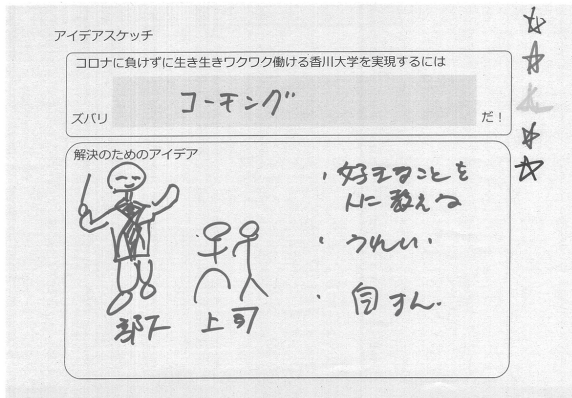 アイデアスケッチ
コロナに負けずに生き生きワクワク働ける香川大学を実現するには
ズバリ
コーチング
だ!
解決のためのアイデア
・好きなことを
人に教える
・うれしい
・自まん
部下
上司